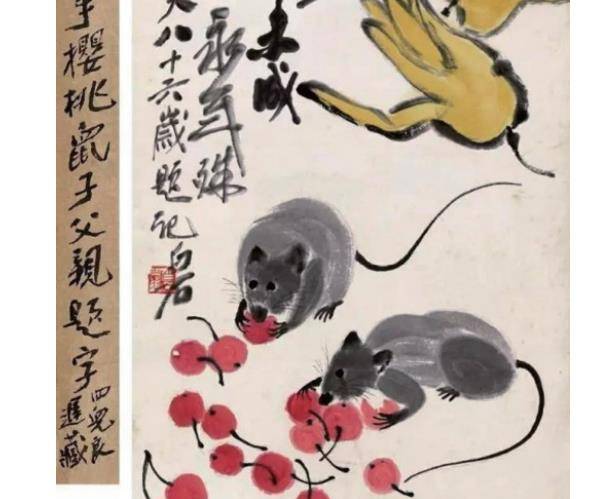 未成
永年殊
八十六歲題記白石
手櫻桃鼠子父親題字
四兒良
遲藏